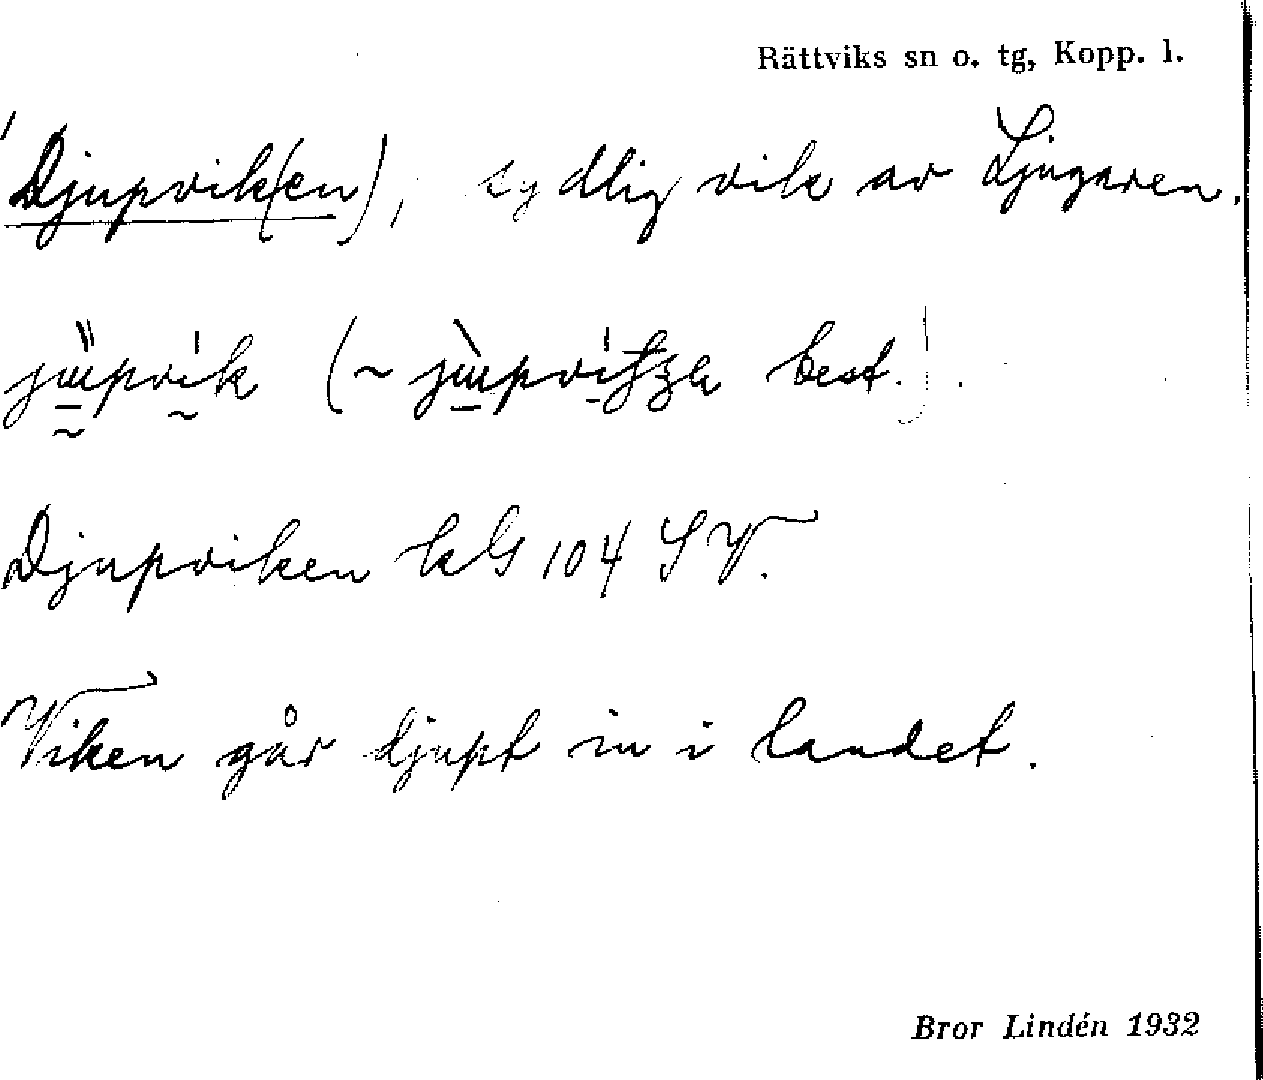 Rättviks sn o. tg, Kopp. l.
Djupvik(en), sydlig vik av Ljugaren.
(~ best.).
Djupviken kbl 104 SV.
Viken går djupt in i landet.
Bror Lindén 1932